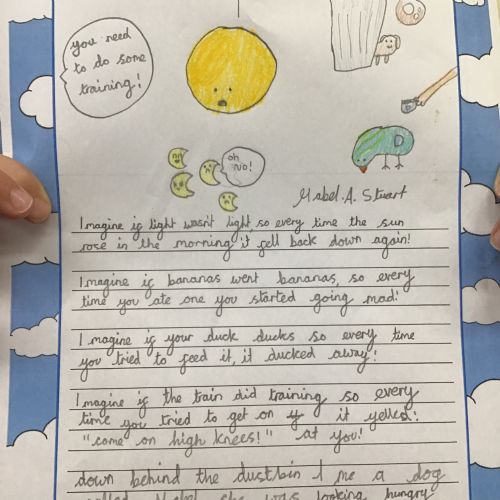 you need
to do some
training!
oh
no!
D
Mabel.A. Stuart
Imagine if light wasn't light, so every time the sun
rose in the morning it fell back down again!
Imagine if bananas went bananas, so every
time you ate one you started going mad!
Imagine if your duck ducks so every time
you tried to feed it, it ducked away!
Imagine if the train did training so every
time you tried to get on it yelled:
"come on high knees!" at you!
down behind the dustbin I me a dog
called Mabel she was looking hungry